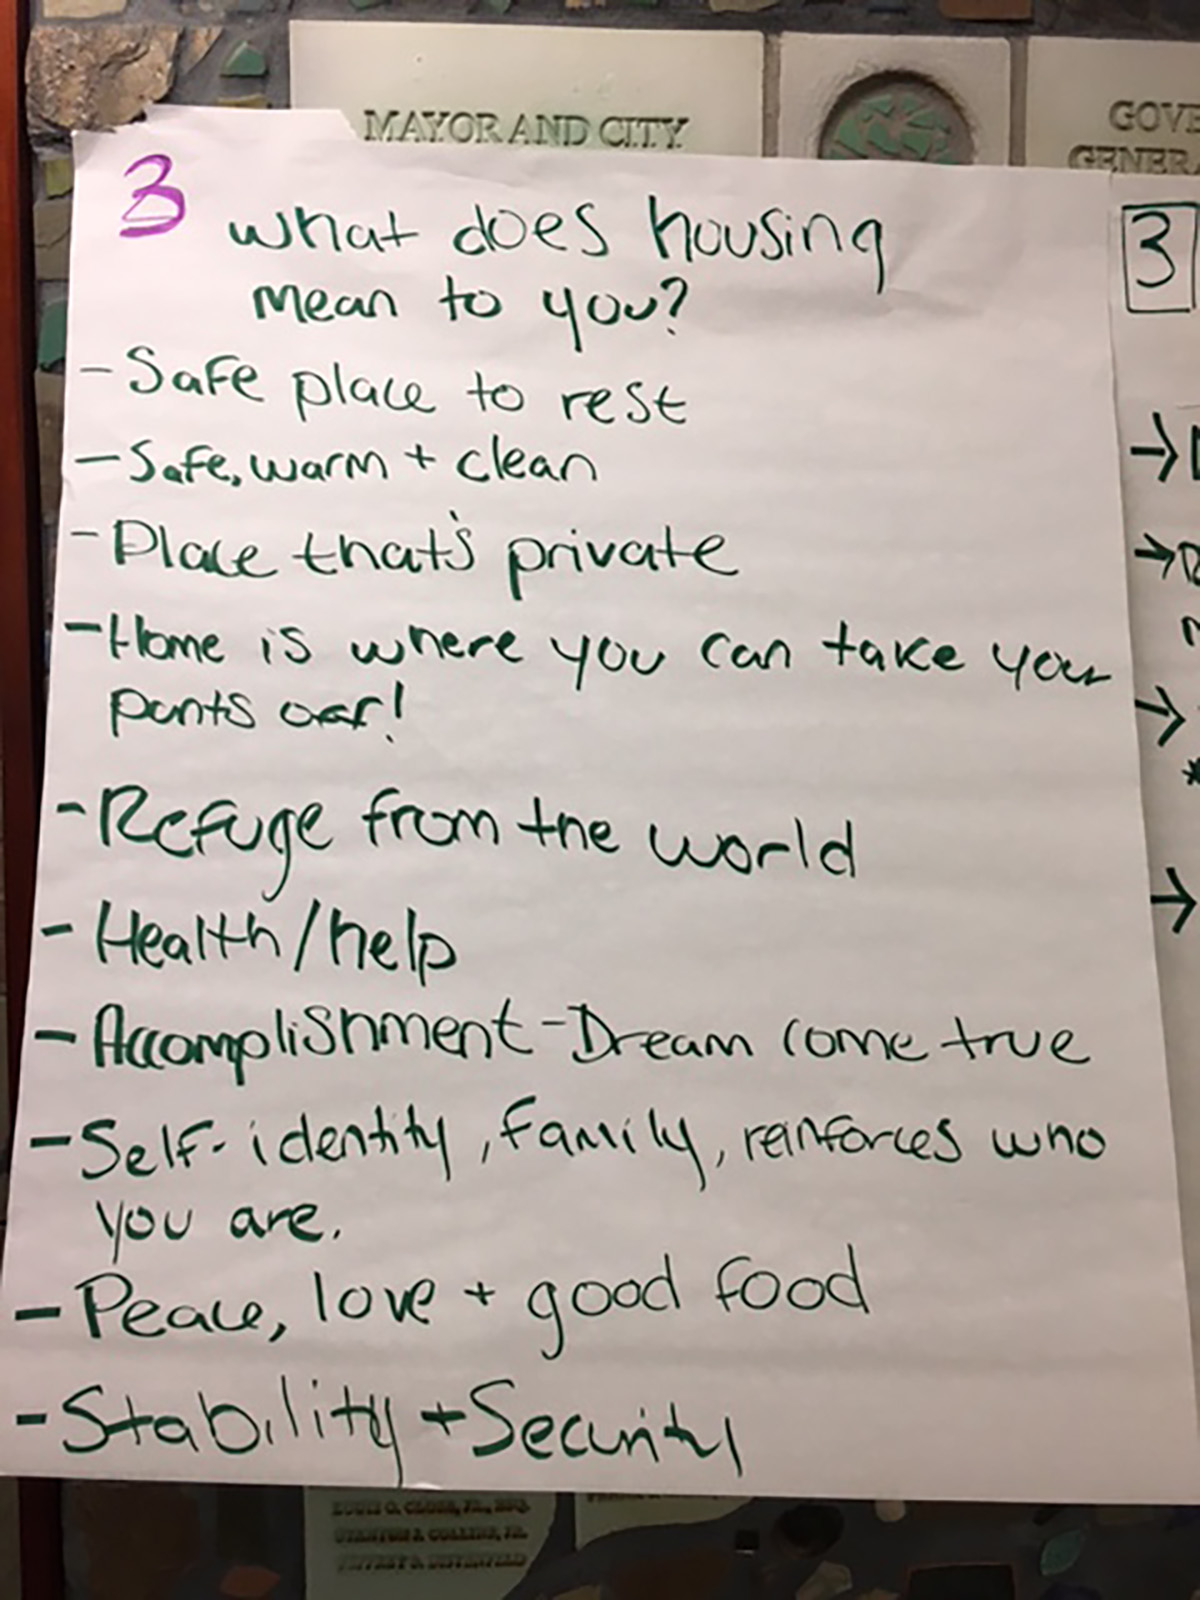 MAYOR AND CITY
GOVE
GENERA
3 What does housing
mean to you?
- Safe place to rest
- Safe, warm + clean
- Place that's private
- Home is where you can take your
pants off!
- Refuge from the world
- Health/help
- Accomplishment - Dream come true
- Self-identity, family, reinforces who
you are.
- Peace, love + good food
- Stability + Security
3
→
→
→
*
→